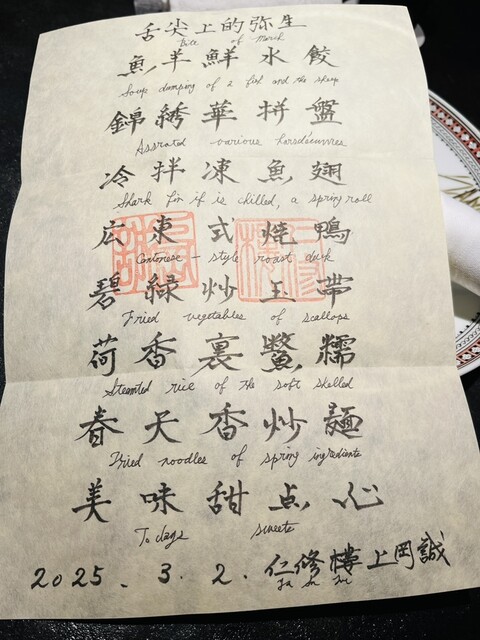 舌尖上的弥生
Bite of March
魚羊鮮水餃
Soup dumping of a fish and the sheep
錦綉華拼盤
Assrated various horsdéuvres
冷拌凍魚翅
Shark fin if is chilled, a spring roll
広東式焼鴨
Cantonese-style roast duck
碧緑炒玉帯
Fried vegetables of scallops
荷香裏鱉糯
Steamted rice of the soft skelled
春天香炒麺
Fried noodles of spring ingrediente
美味甜点心
To days sweets
2025.3.2. 仁修樓 上岡誠